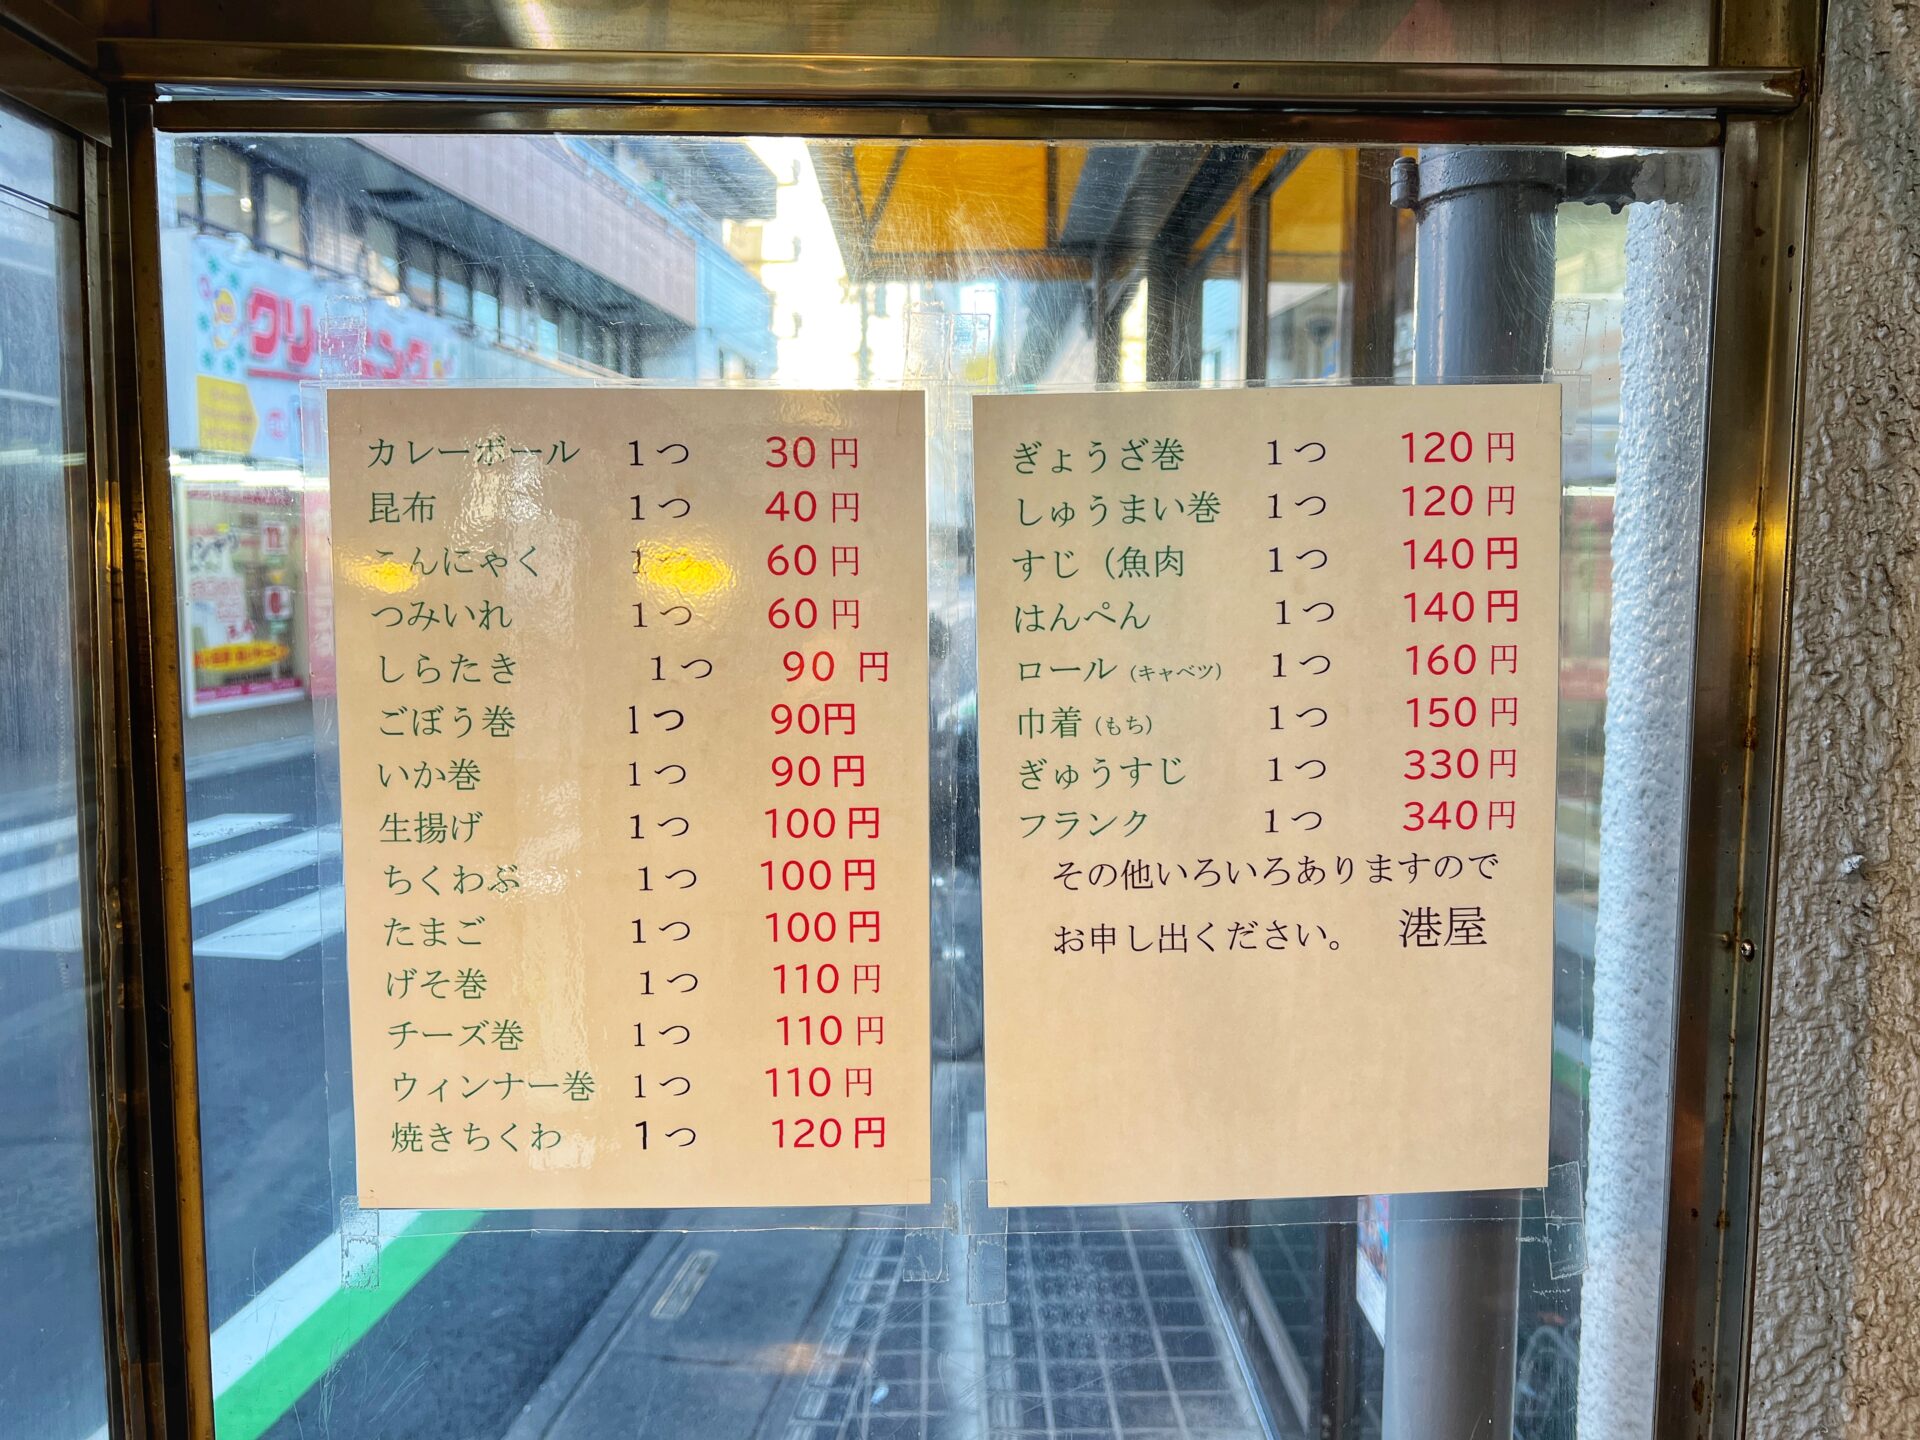 クリーニング
カレーボール 1つ 30円
昆布 1つ 40円
こんにゃく 1つ 60円
つみいれ 1つ 60円
しらたき 1つ 90円
ごぼう巻 1つ 90円
いか巻 1つ 90円
生揚げ 1つ 100円
ちくわぶ 1つ 100円
たまご 1つ 100円
げそ巻 1つ 110円
チーズ巻 1つ 110円
ウィンナー巻 1つ 110円
焼きちくわ 1つ 120円
ぎょうざ巻 1つ 120円
しゅうまい巻 1つ 120円
すじ（魚肉 1つ 140円
はんぺん 1つ 140円
ロール（キャベツ） 1つ 160円
巾着（もち） 1つ 150円
ぎゅうすじ 1つ 330円
フランク 1つ 340円
その他いろいろありますので
お申し出ください。 港屋